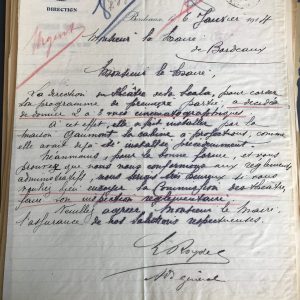 DIRECTION
Urgent
Bordeaux, 6 Janvier 1914
Monsieur le Maire
de Bordeaux
Monsieur le Maire,
La direction du théâtre de la Scala, pour corser
le programme de première partie, a décidé
de donner 2 à 3 vues cinématographiques
A cet effet, elle a fait installer par la
maison Gaumont la cabine à projections, comme
elle avait déjà été installée précédemment.
Néanmoins, pour la bonne forme, et vous
prouver que nous nous conformons aux règlements
administratifs nous serions bien heureux si vous
vouliez bien envoyer la Commission des théâtres,
faire son inspection réglementaire.
Veuillez agréer, Monsieur le Maire,
l'assurance de nos salutations respectueuses.